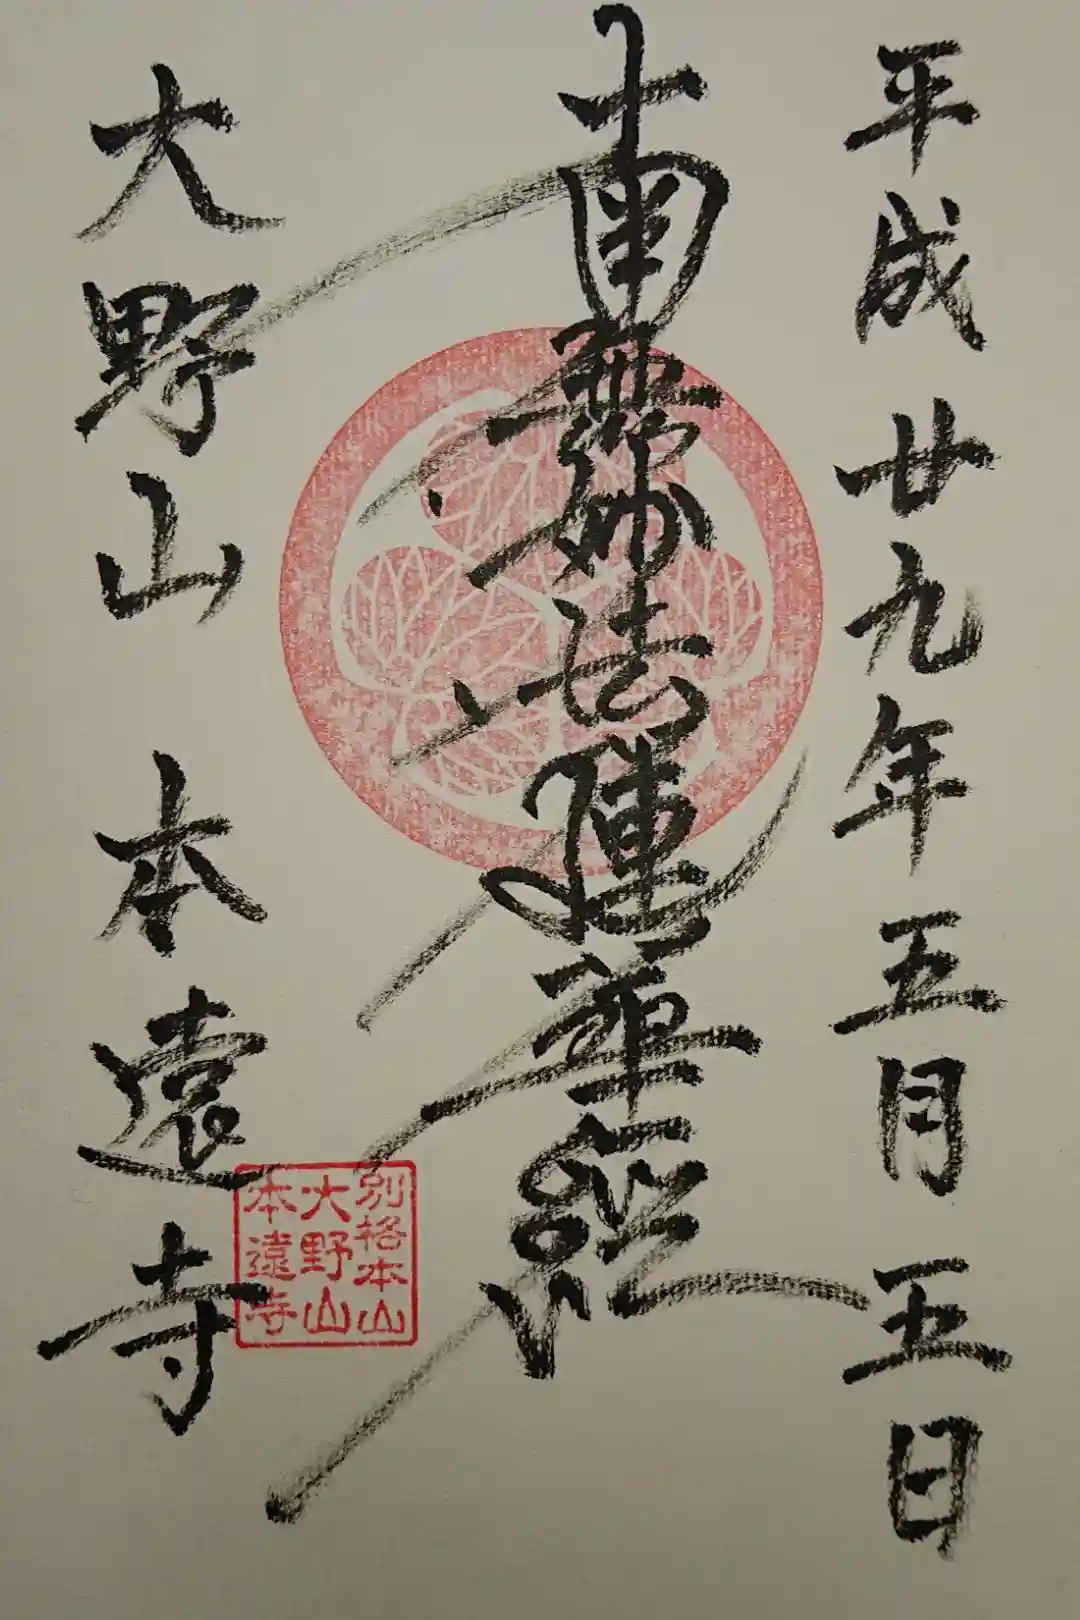 平成廿九年五月五日
南無妙法蓮華経
大野山 本遠寺
別格本山
大野山
本遠寺